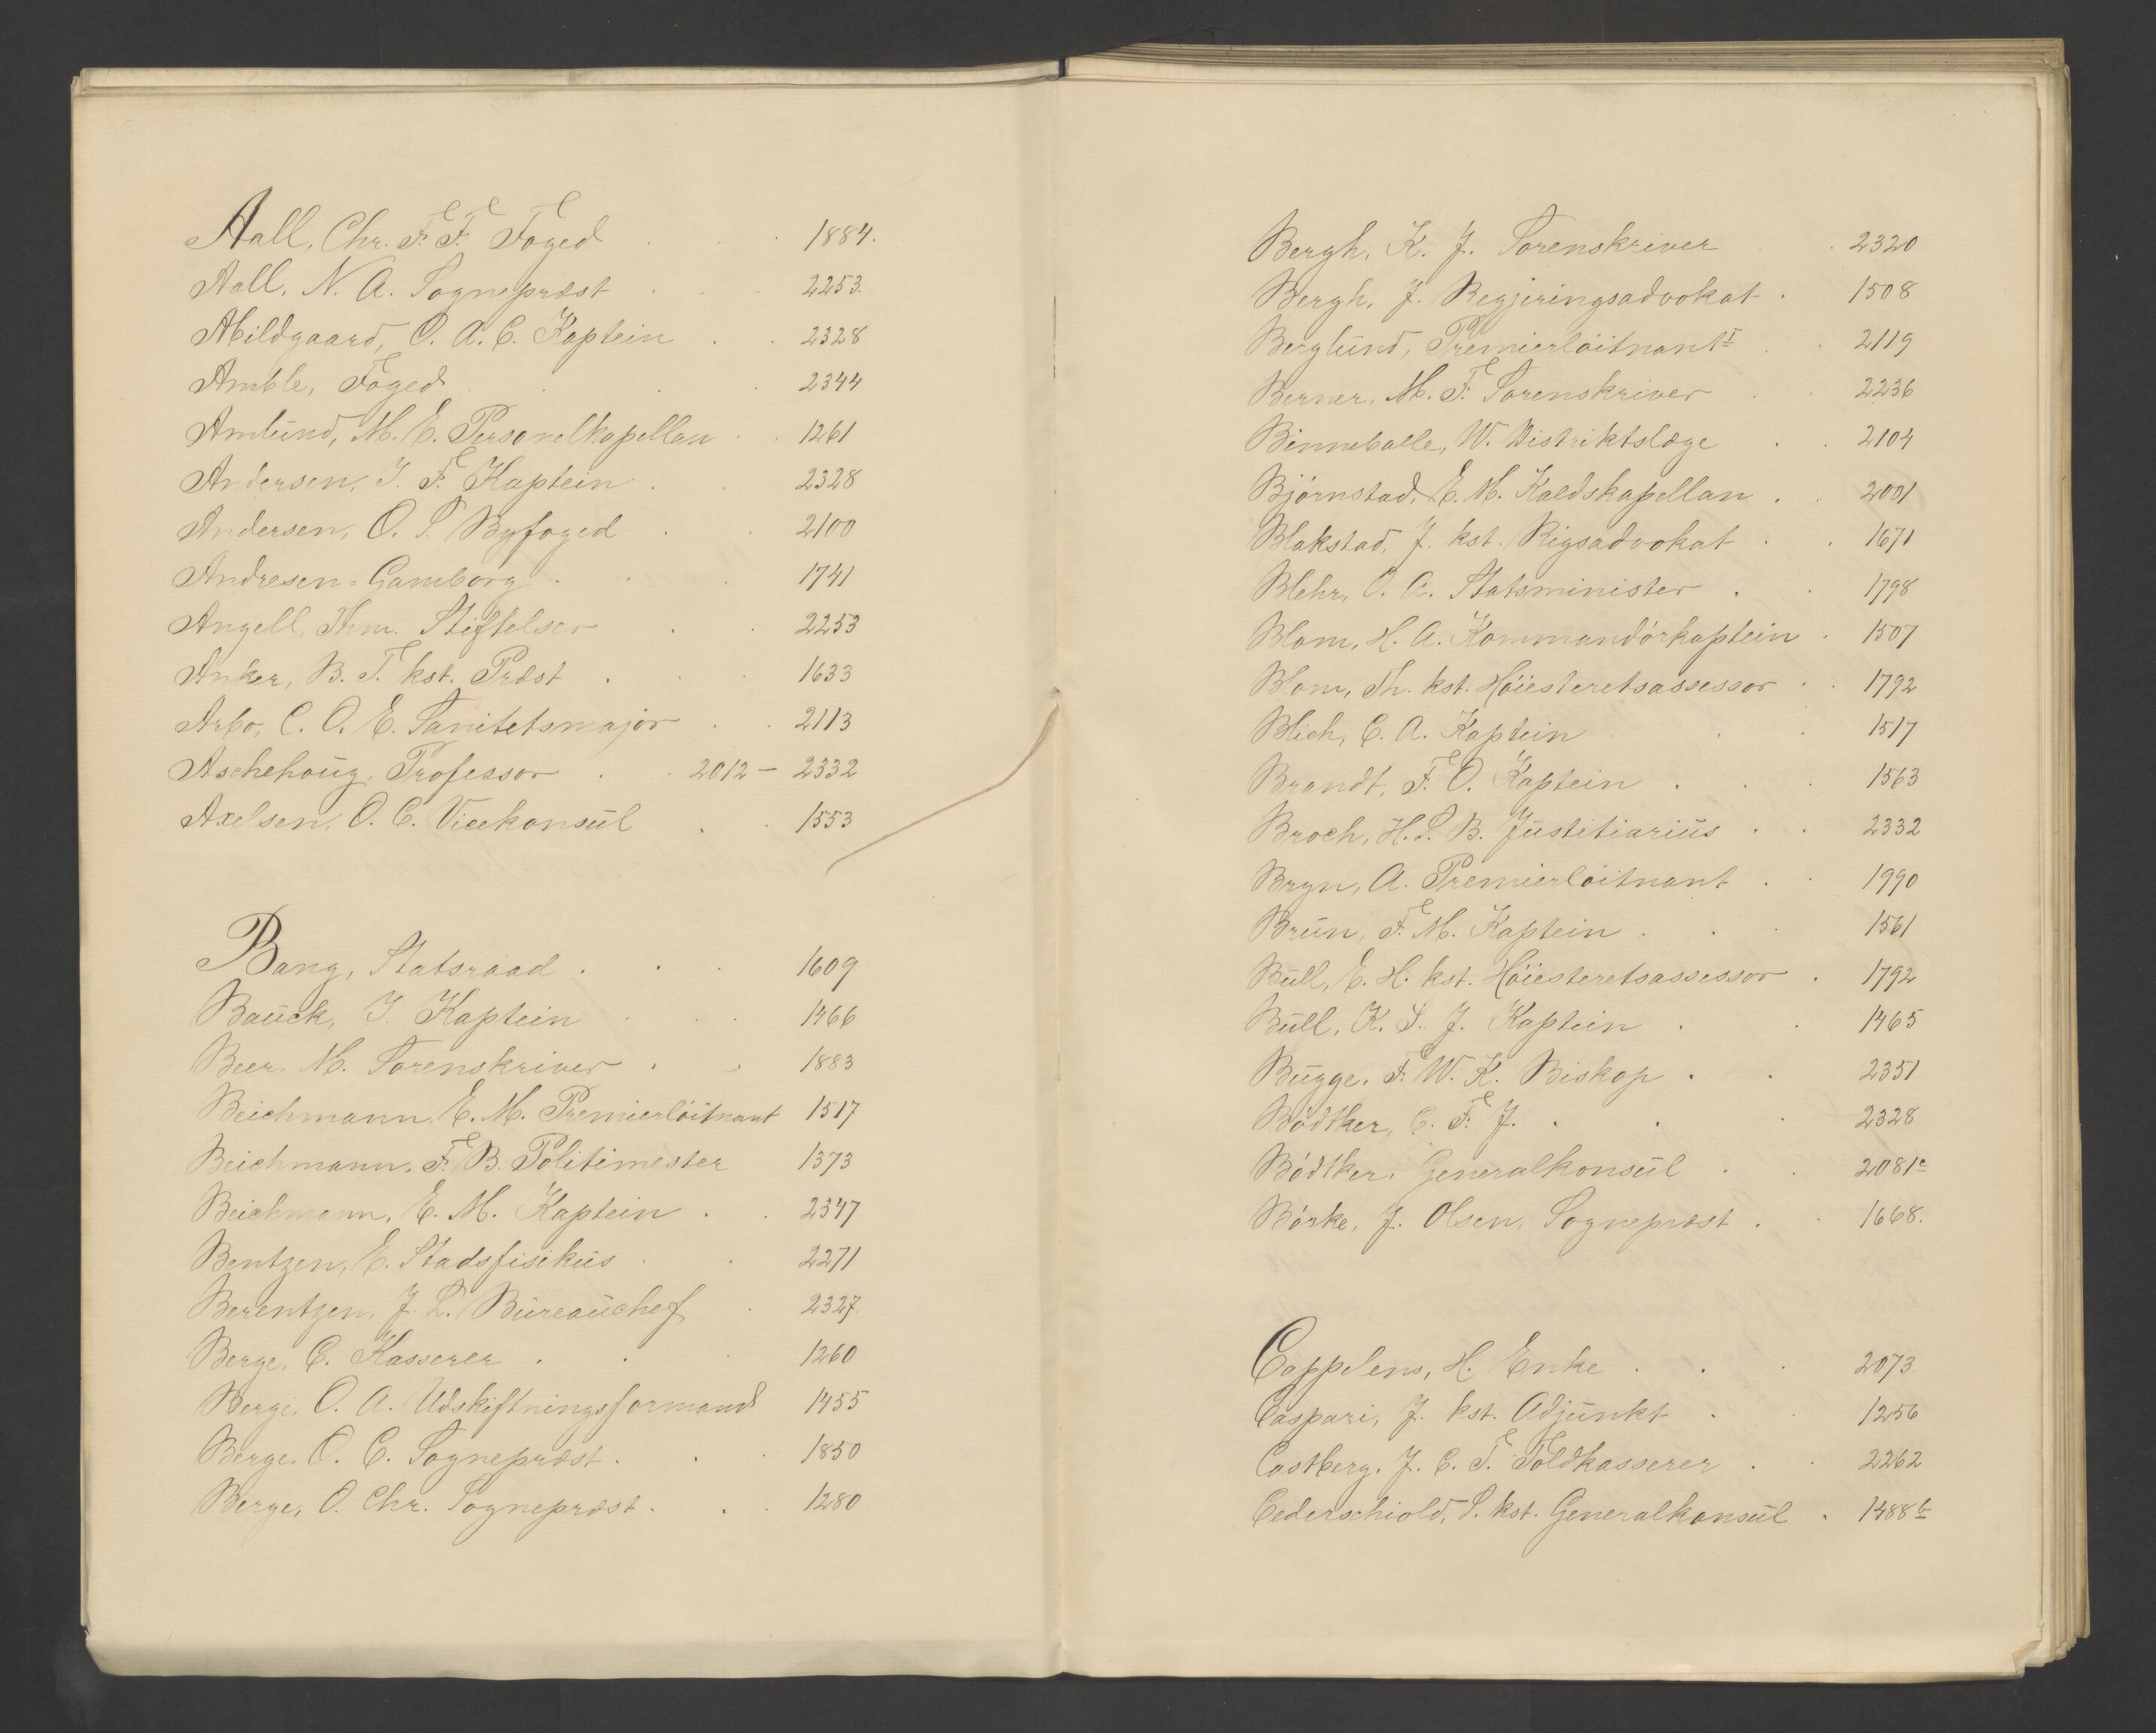 Aall, Chr. F. F. Foged . . 1884.
Aall, N. A. Sognepræst . . . 2253.
Abildgaard, O. A. C. Kaptein . . 2328
Amble, Foged . . . 2344
Amlund, M. E. Personelkapellan . . 1261
Andersen, J. F. Kaptein . . 2328
Andersen, O. S. Byfoged . . 2100
Andresen-Gamborg . . . 1741
Angell, Thm. Stiftelser . . 2253
Anker, B. T. kst. Præst . . . 1633
Arbo, C. O. E. Sanitetsmajor . . 2113
Aschehoug, Professor . . 2012 - 2332
Axelsen, O. C. Vicekonsul . . 1553
Bang, Statsraad . . . 1609
Bauck, J. Kaptein . . . 1466
Beer, M. Sorenskriver . . 1883
Beichmann, E. M. Premierløitnant 1517
Beichmann, F. B. Politimester 1373
Beichmann, E. M. Kaptein . . 2347
Bentzen, E. Stadsfisikus . . 2271
Berentzen, J. L. Bureauchef . 2327.
Berge, C. Kasserer . . . 1260
Berge, O. A. Udskiftningsformand 1455
Berge, O. C. Sognepræst . . . 1850
Berge, O. Chr. Sogneprøst . . . 1280
Bergh, K. J. Sorenskriver . 2320
Bergh, J. Regjeringsadvokat . 1508
Berglund, Premierløitnant I . . 2119
Berner, M. F. Sorenskriver . . 2236
Binneballe, W. Distriktslæge . . 2104
Bjørnstad, E. M. Kaldskapellan . . 2001
Blakstad, J. kst. Rigsadvokat . . 1671
Blehr, O. A. Statsminister . . 1798
Blom, H. A. Kommandørkaptein . 1507
Blom, Th. kst. Høiesteretsassessor . . 1792
Blich, C. A. Kaptein . . . 1517
Brandt, F. O. Kaptein . . . 1563
Broch, H. L. B. Justitiarius . . 2332
Bryn, A. Premierløitnant . . 1990
Brun, F. M. Kaptein . . . 1561
Bull, E. H. kst. Høiesteretsassessor . 1792
Bull, K. S. J. Kaptein . . 1465
Bugge, F. W. K. Biskop . . 2351
Bødtker, C. F. J. . . . 2328
Bødtker, Generalkonsul . . 2081c
Børke, J. Olsen, Sogneprøst . . 1668.
Cappelens, H. Enke . . . 2073.
Caspari, J. kst. Adjunkt . . 1256
Castberg, J. C. T. Toldkasserer . . 2262
Cederschiold, S. kst. Generalkonsul . 1488b